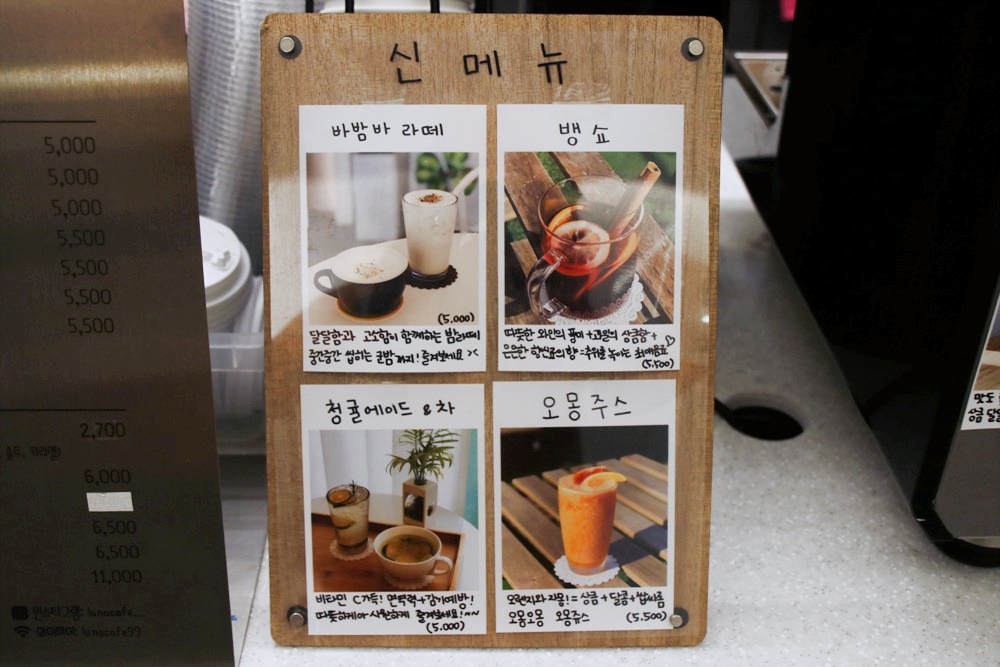 신메뉴
바밤바 라떼
(5.000)
달달함과 고소함이 함께하는 밤라떼
중간중간 씹히는 군밤까지! 즐겨보세요 ><
뱅쇼
따뜻한 와인의 풍미 + 과일의 상큼함 +
은은한 향신료의 향 = 추위를 녹이는 최애음료♡
(5.500)
청귤에이드 & 차
비타민 C가득! 면역력+감기예방!
따뜻하게 or 시원하게 즐겨보세요!~~
(5.000)
오몽쥬스
오렌지와 자몽! = 상큼 + 달콤 + 쌉싸름
오몽오몽 오몽쥬스 (5.500)
5,000
5,000
5,000
5,500
5,500
5,500
5,500
2,700
6,000
6,500
6,500
11,000
인스타그램: lunacafe_
와이파이: lunacafe99
맛도
상큼 달